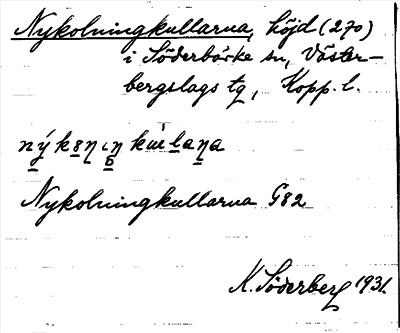 Nykolningkullarna, höjd (270)
i Söderbärke sn, Väster-
bergslags tg, Kopp. l.
Nykolningkullarna G82
K. Söderberg 1931.